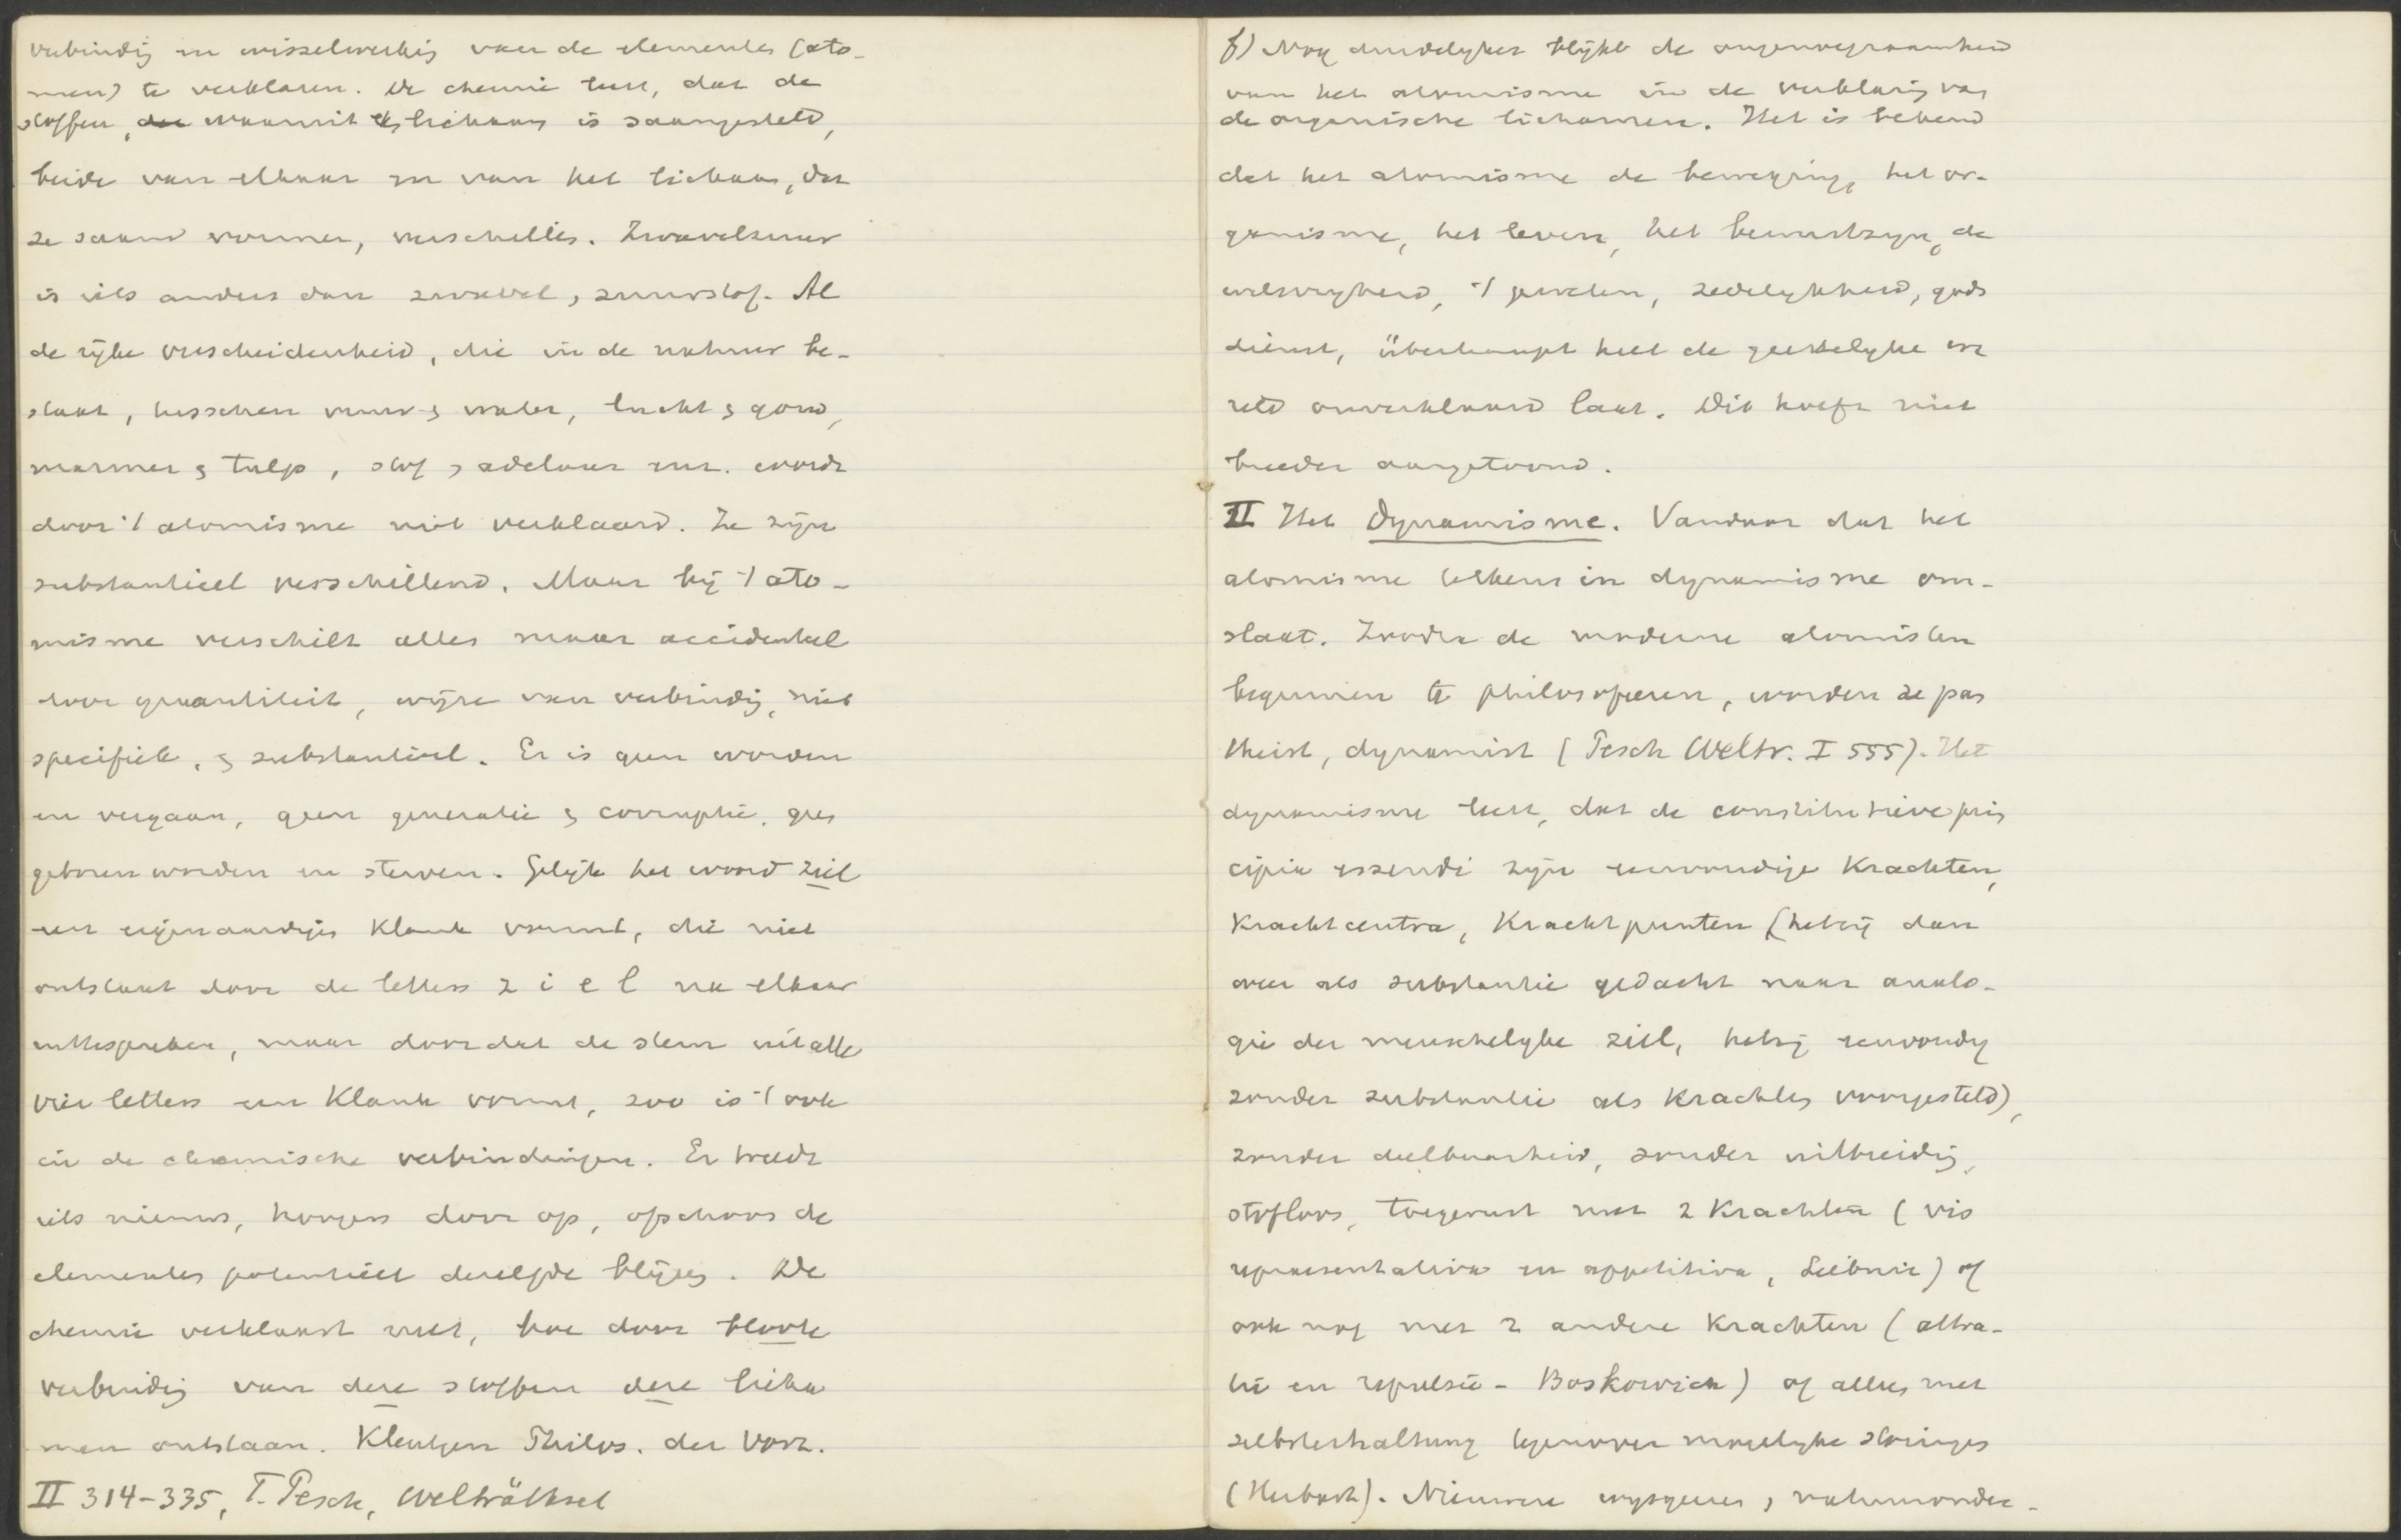 verbindig en wisselwerkig van de elementen (ato-
men) te verklaren. De chemie leert, dat de
stoffen, waaruit elk lichaam is saamgesteld,
beide van elkaar en van het lichaam, dat
ze saam vormen, verschillen. Zwavelzuur
is iets anders dan zwavel, zuurstof. Al
de rijke verscheidenheid, die in de natuur be-
staat, tusschen vuur & water, lucht & goud,
marmer & tulp, slof & adelaar enz. wordt
door 't atomisme niet verklaard. Ze zijn
substantieel verschillend. Maar bij 't ato-
misme verschilt alles maar accidenteel
door quantiteit, wijze van verbindig, niet
specifiek, & substantieel. Er is geen worden
en vergaan, geen generatie & corruptie, geen
geboren worden en sterven. Gelijk het woord ziel
een eigenaardigen klank vormt, die niet
ontstaat door de letters z i e l na elkaar
uittespreken, maar doordat de stem uit alle
vier letters een klank vormt, zoo is 't ook
in de chemische verbindingen. Er treedt
iets nieuws, hoogers door op, ofschoon de
elementen potentieel dezelfde blijven. De
chemie verklaart niet, hoe door bloote
verbindig van deze stoffen deze licha
men ontstaan. Kleutgen Philos. der Vorz.
II 314-335, T. Pesch, Welträthsel
f) Nog duidelijker blijkt de ongenoegzaamheid
van het atomisme in de verklarig van
de organische lichamen. Het is bekend
dat het atomisme de beweging, het or-
ganisme, het leven, het bewustzyn, de
wilsvryheid, 't geweten, zedelykheid, gods
dienst, überhaupt heel de geestelyke we
reld onverklaard laat. Dit hoeft niet
breeder aangetoond.
II Het Dynamisme. Vandaar dat het
atomisme telkens in dynamisme om-
slaat. Zoodra de moderne atomisten
beginnen te philosofeeren, worden ze pan
theist, dynamist (Pesch Weltr. I 555). Het
dynamisme leert, dat de constitutieve prin
cipia essendi zijn eenvoudige Krachten,
Krachtcentra, Krachtpunten (hetzij dan
weer als substantie gedacht naar analo-
gie der menschelyke ziel, hetzij eenvoudig
zonder substantie als Krachten voorgesteld),
zonder deelbaarheid, zonder uitbreidig,
stofloos, toegerust met 2 Krachten (vis
repraesentativa en appetitiva, Leibniz) of
ook nog met 2 andere Krachten (attra-
tie en repulsie - Boskowich) of alleen met
selbsterhaltung tegenover mogelyke storingen
(Herbart). Nieuwere wysgeeren, natuuronder-